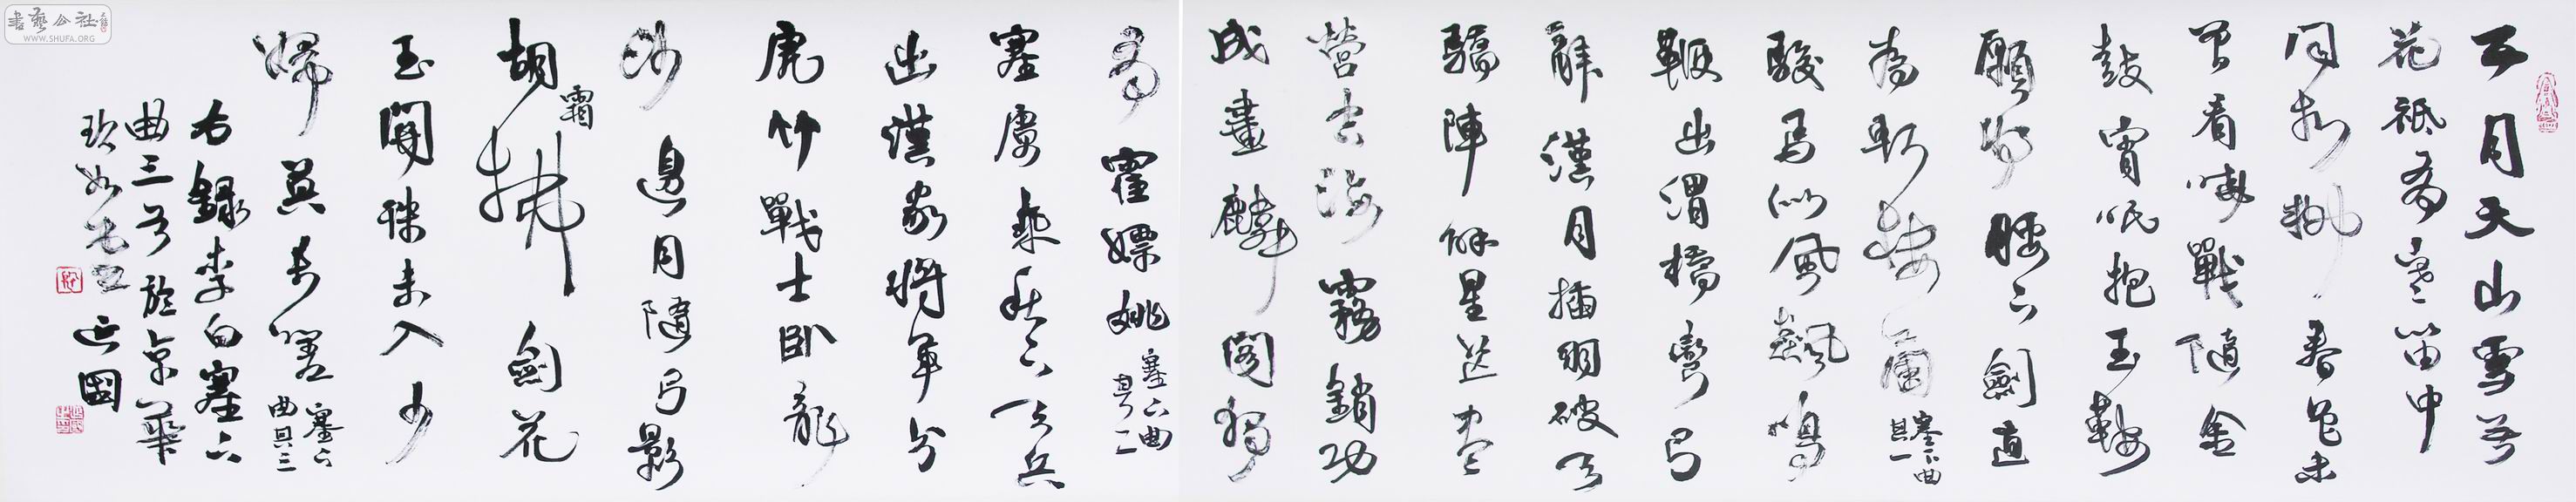 五月天山雪无
花祇有寒笛中
闻折柳春色未
曾看曉戰隨金
鼓宵眠抱玉鞍
願将腰下劍直
为斬樓蘭
塞下曲其一
駿馬似風飆鳴
鞭出渭橋彎弓
辭漢月插羽破天
驕陣解星芒盡
營空海霧銷功
成畫麟閣獨
有霍嫖姚
塞下曲其二
塞虜乘秋下天兵
出漢家將軍分
虎竹戰士卧龍
沙邊月隨弓影
胡霜拂劍花
玉關殊未入少
婦莫長嗟
塞下曲其三
右錄李白塞下
曲三首於京華
正國
書藝公社
WWW.SHUFA.ORG